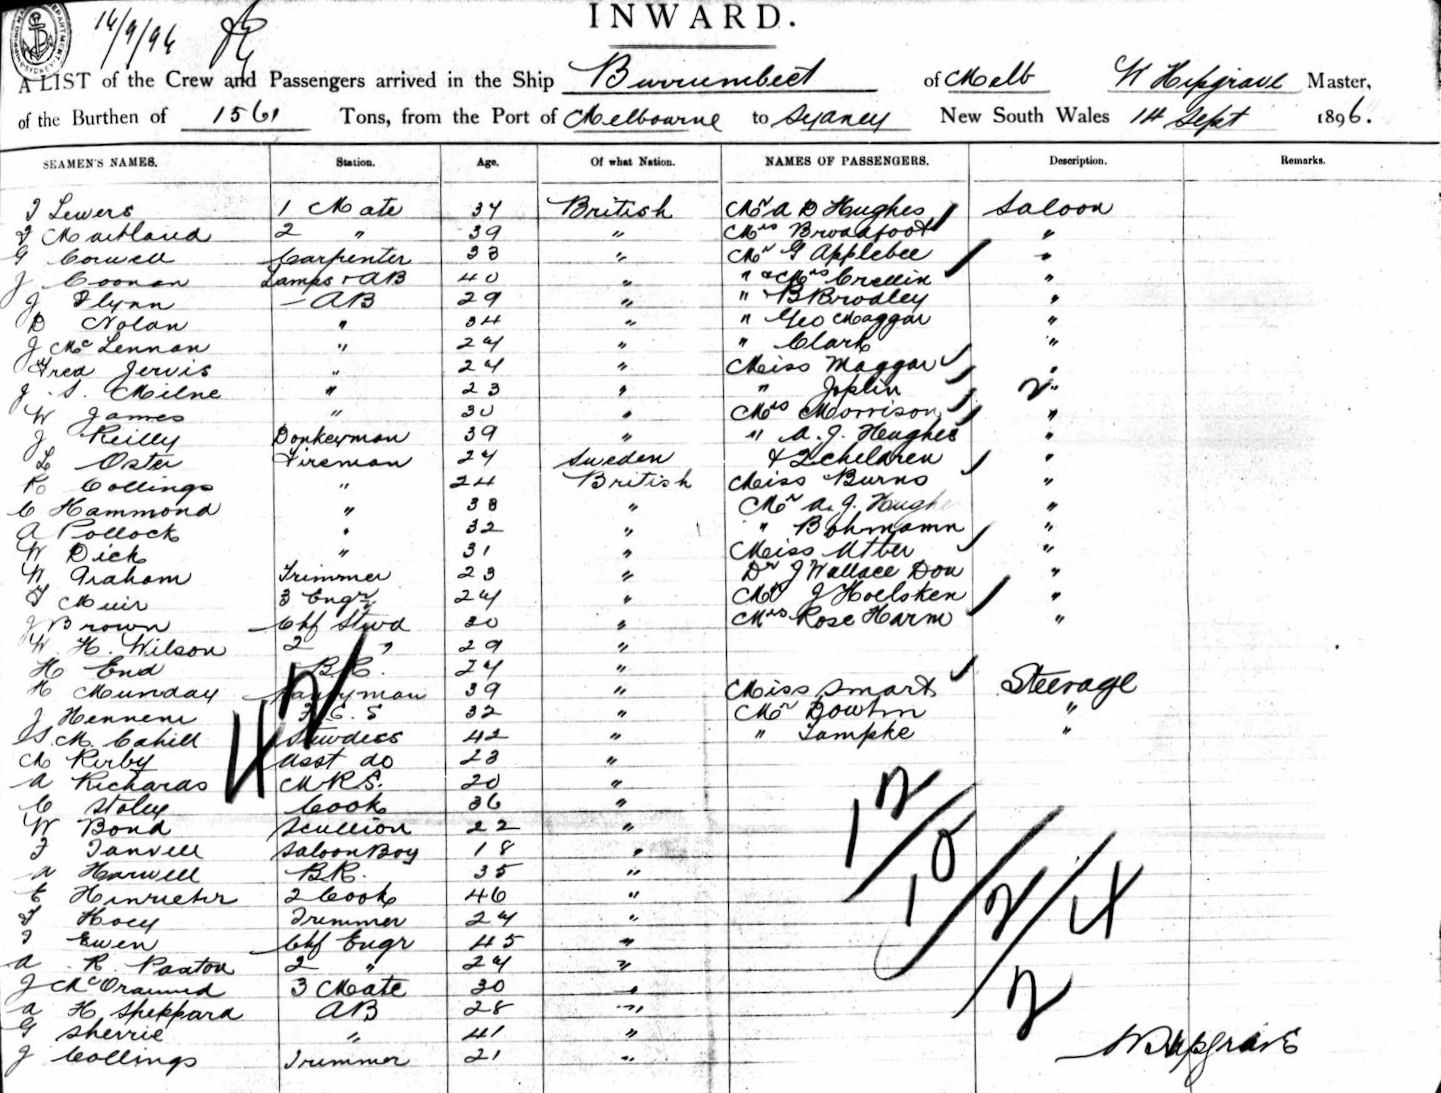 14/9/96
INWARD.
A LIST of the Crew and Passengers arrived in the Ship Burrumbeet of Melb W Hipgrave Master,
of the Burthen of 1561 Tons, from the Port of Melbourne to Sydney New South Wales 14 Sept 1896.
SEAMEN'S NAMES. Station. Age. Of what Nation. NAMES OF PASSENGERS. Description. Remarks.
Lewers 1 Mate 34 British Mr A D Hughes Saloon
Maitland 2 " 39 " Mrs Broadfoot "
G Corwell Carpenter 33 " Mr G Applebee "
J Coonan Lamps & AB 40 " " & Mrs Crellin "
J Flynn AB 29 " " B Brodley "
D Nolan " 34 " " Geo Maggar "
J McLennan " 24 " " Clark "
Fred Jervis " 24 " Miss Maggar "
J. S. Milne " 23 " " Joplin "
W James " 30 " Mrs Morrison "
J Reilly Donkeyman 39 " " A. J. Hughes "
L Oster Fireman 24 Sweden & 2 children "
Collings " 24 British Miss Burns "
C Hammond " 38 " Mr A. J. Hughes "
A Pollock " 32 " " Bohmamn "
W Dick " 31 " Miss Utber "
W Graham Trimmer 23 " Dr J Wallace Dou "
Muir 3 Engr 24 " Mr J Hoelsken "
J Brown Chf Stwd 30 " Mrs Rose Harm "
W. H. Wilson 2 " 29 "
H End B.R. 24 "
H Munday Pantryman 39 " Miss Smart Steerage
J Hennem F. C. S 32 " Mr "
S. M. Cahill Stewdess 42 " " Tampke "
M Kirby Asst do 23 "
A Richards M.R.S. 20 "
C Staley Cook 36 "
W Bond Scullion 22 "
Tanvell Saloon Boy 18 "
A Harwell B.R. 35 "
E 2 Cook 46 "
Hoey Trimmer 24 "
Ewen Chf Engr 45 "
A. R. Paxton 2 " 24 "
J 3 Mate 30 "
A H Sheppard AB 28 "
G Sherrie " 41 "
J Collings Trimmer 21 "
42
12/10/2/4
2
W Hipgrave